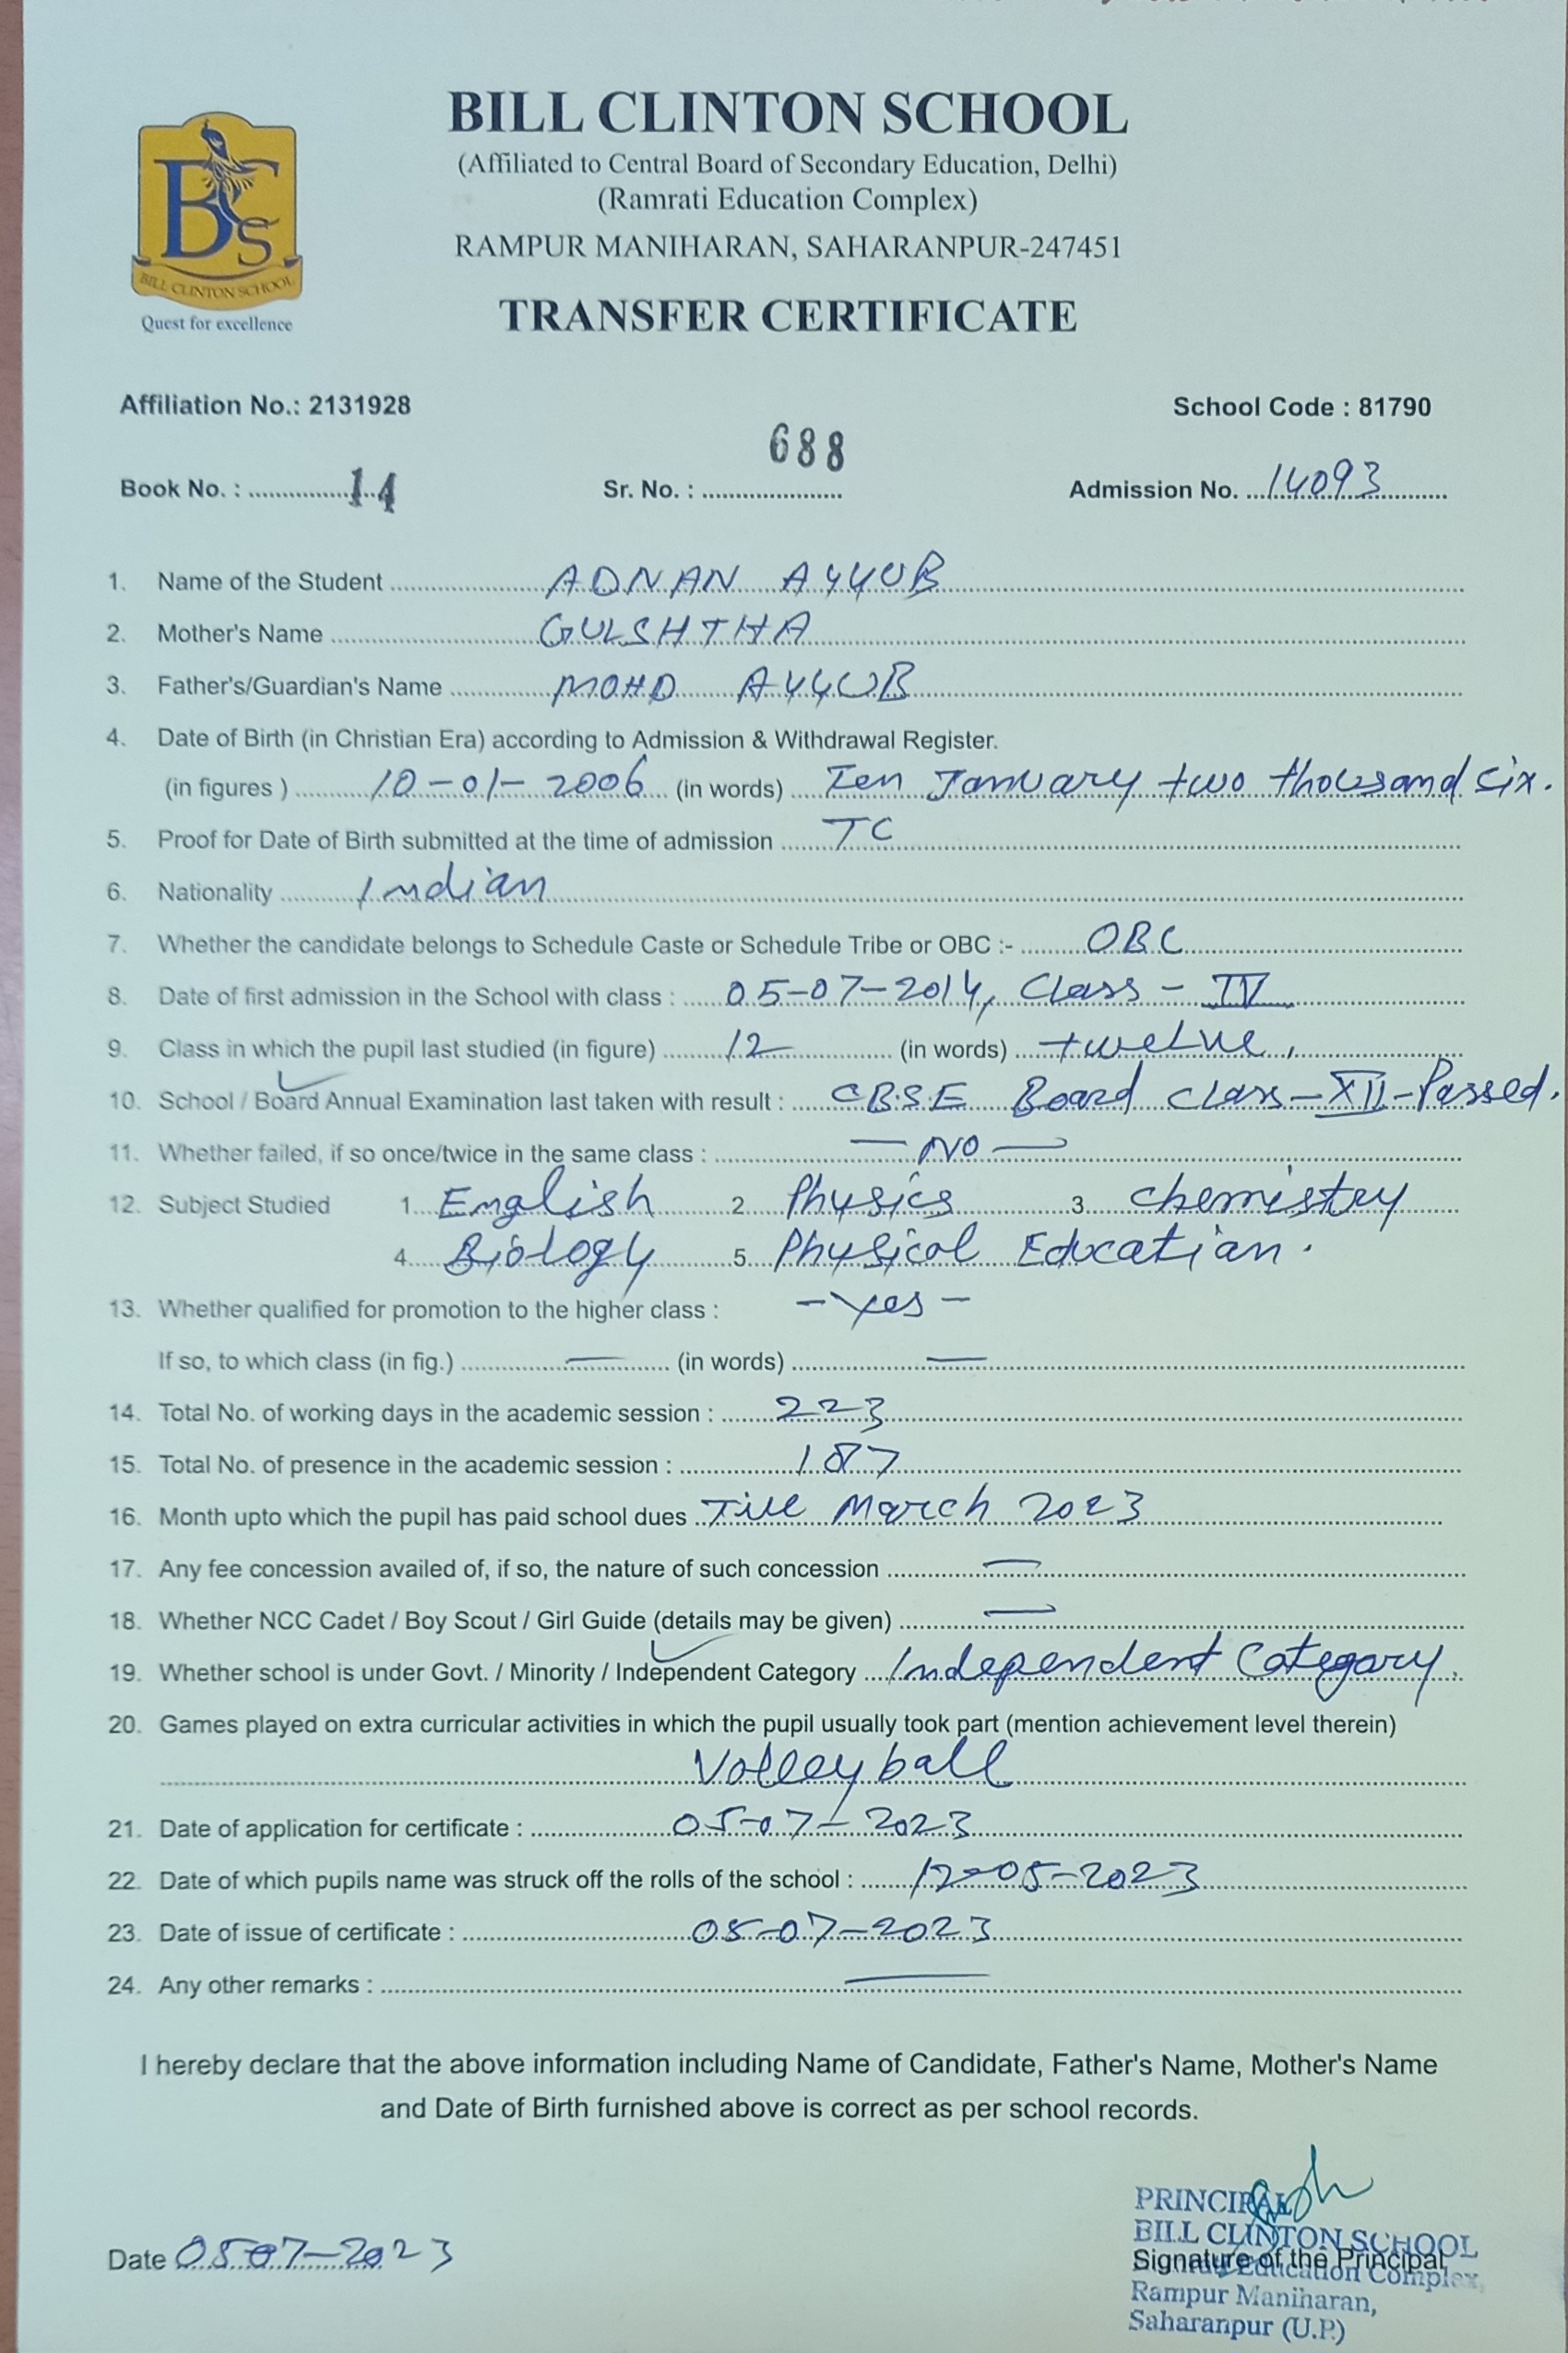 BILL CLINTON SCHOOL
(Affiliated to Central Board of Secondary Education, Delhi)
(Ramrati Education Complex)
RAMPUR MANIHARAN, SAHARANPUR-247451
BCS
BILL CLINTON SCHOOL
Quest for excellence
TRANSFER CERTIFICATE
Affiliation No.: 2131928 School Code : 81790
Book No. : 14 Sr. No. : 688 Admission No. 14093
1. Name of the Student ADNAN AYYUB
2. Mother's Name GULSHTHA
3. Father's/Guardian's Name MOHD AYYUB
4. Date of Birth (in Christian Era) according to Admission & Withdrawal Register.
(in figures ) 10-01-2006 (in words) Ten January two thousand six.
5. Proof for Date of Birth submitted at the time of admission TC
6. Nationality Indian
7. Whether the candidate belongs to Schedule Caste or Schedule Tribe or OBC :- OBC
8. Date of first admission in the School with class : 05-07-2014, Class - IV
9. Class in which the pupil last studied (in figure) 12 (in words) twelve,
10. School / Board Annual Examination last taken with result : CBSE Board class-XII-Passed.
11. Whether failed, if so once/twice in the same class : — NO —
12. Subject Studied 1. English 2. Physics 3. chemistry
4. Biology 5. Physical Education.
13. Whether qualified for promotion to the higher class : - Yes -
If so, to which class (in fig.) — (in words) —
14. Total No. of working days in the academic session : 223
15. Total No. of presence in the academic session : 187
16. Month upto which the pupil has paid school dues Till March 2023
17. Any fee concession availed of, if so, the nature of such concession —
18. Whether NCC Cadet / Boy Scout / Girl Guide (details may be given) —
19. Whether school is under Govt. / Minority / Independent Category Independent Category
20. Games played on extra curricular activities in which the pupil usually took part (mention achievement level therein)
Volleyball
21. Date of application for certificate : 05-07-2023
22. Date of which pupils name was struck off the rolls of the school : 12-05-2023
23. Date of issue of certificate : 05-07-2023
24. Any other remarks : —
I hereby declare that the above information including Name of Candidate, Father's Name, Mother's Name
and Date of Birth furnished above is correct as per school records.
PRINCIPAL
BILL CLINTON SCHOOL
Date 05-07-2023 Signature of the Principal
Education Complex,
Rampur Maniharan,
Saharanpur (U.P.)